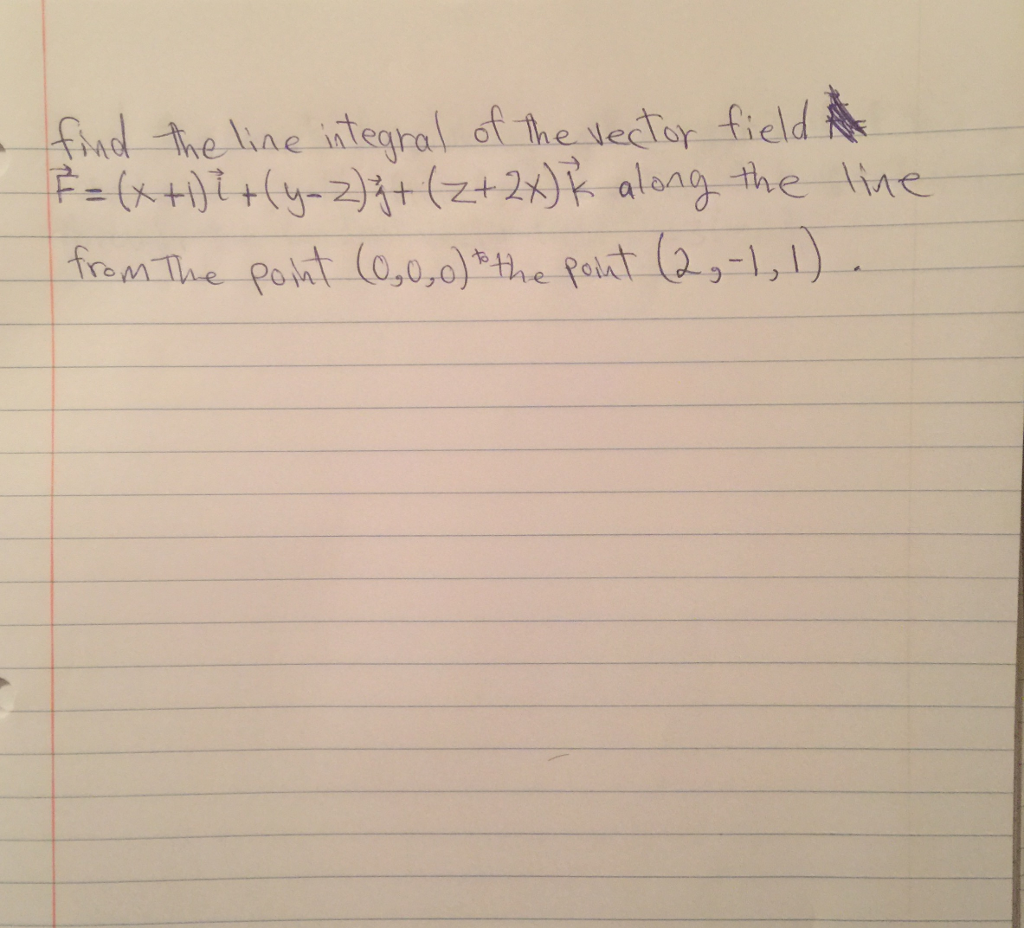 find the line integral of the vector field
F⃗ = (x+1)i⃗ + (y-z)j⃗ + (z+2x)k⃗ along the line
from The point (0,0,0) to the point (2,-1,1).